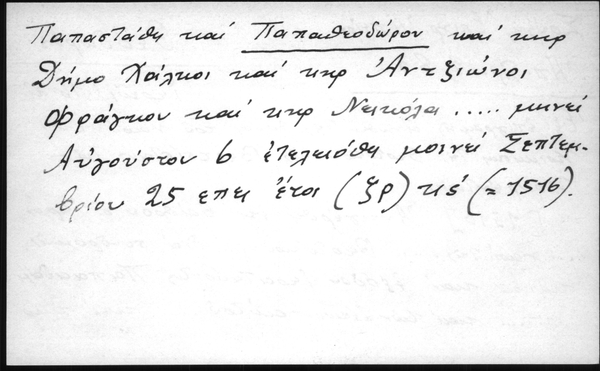 Παπαστάθη καί Παπαθεοδώρου καί κηρ
Δήμο Χάλκοι καί κηρ Ἀντζιώνοι
Φράγκου καί κηρ Νεικόλα ..... μινεί
Αὐγούστου 6 ἐτελειόθη μοινεί Σεπτεμ-
βρίου 25 επει ἔτοι (ζρ) κέ (= 1516).